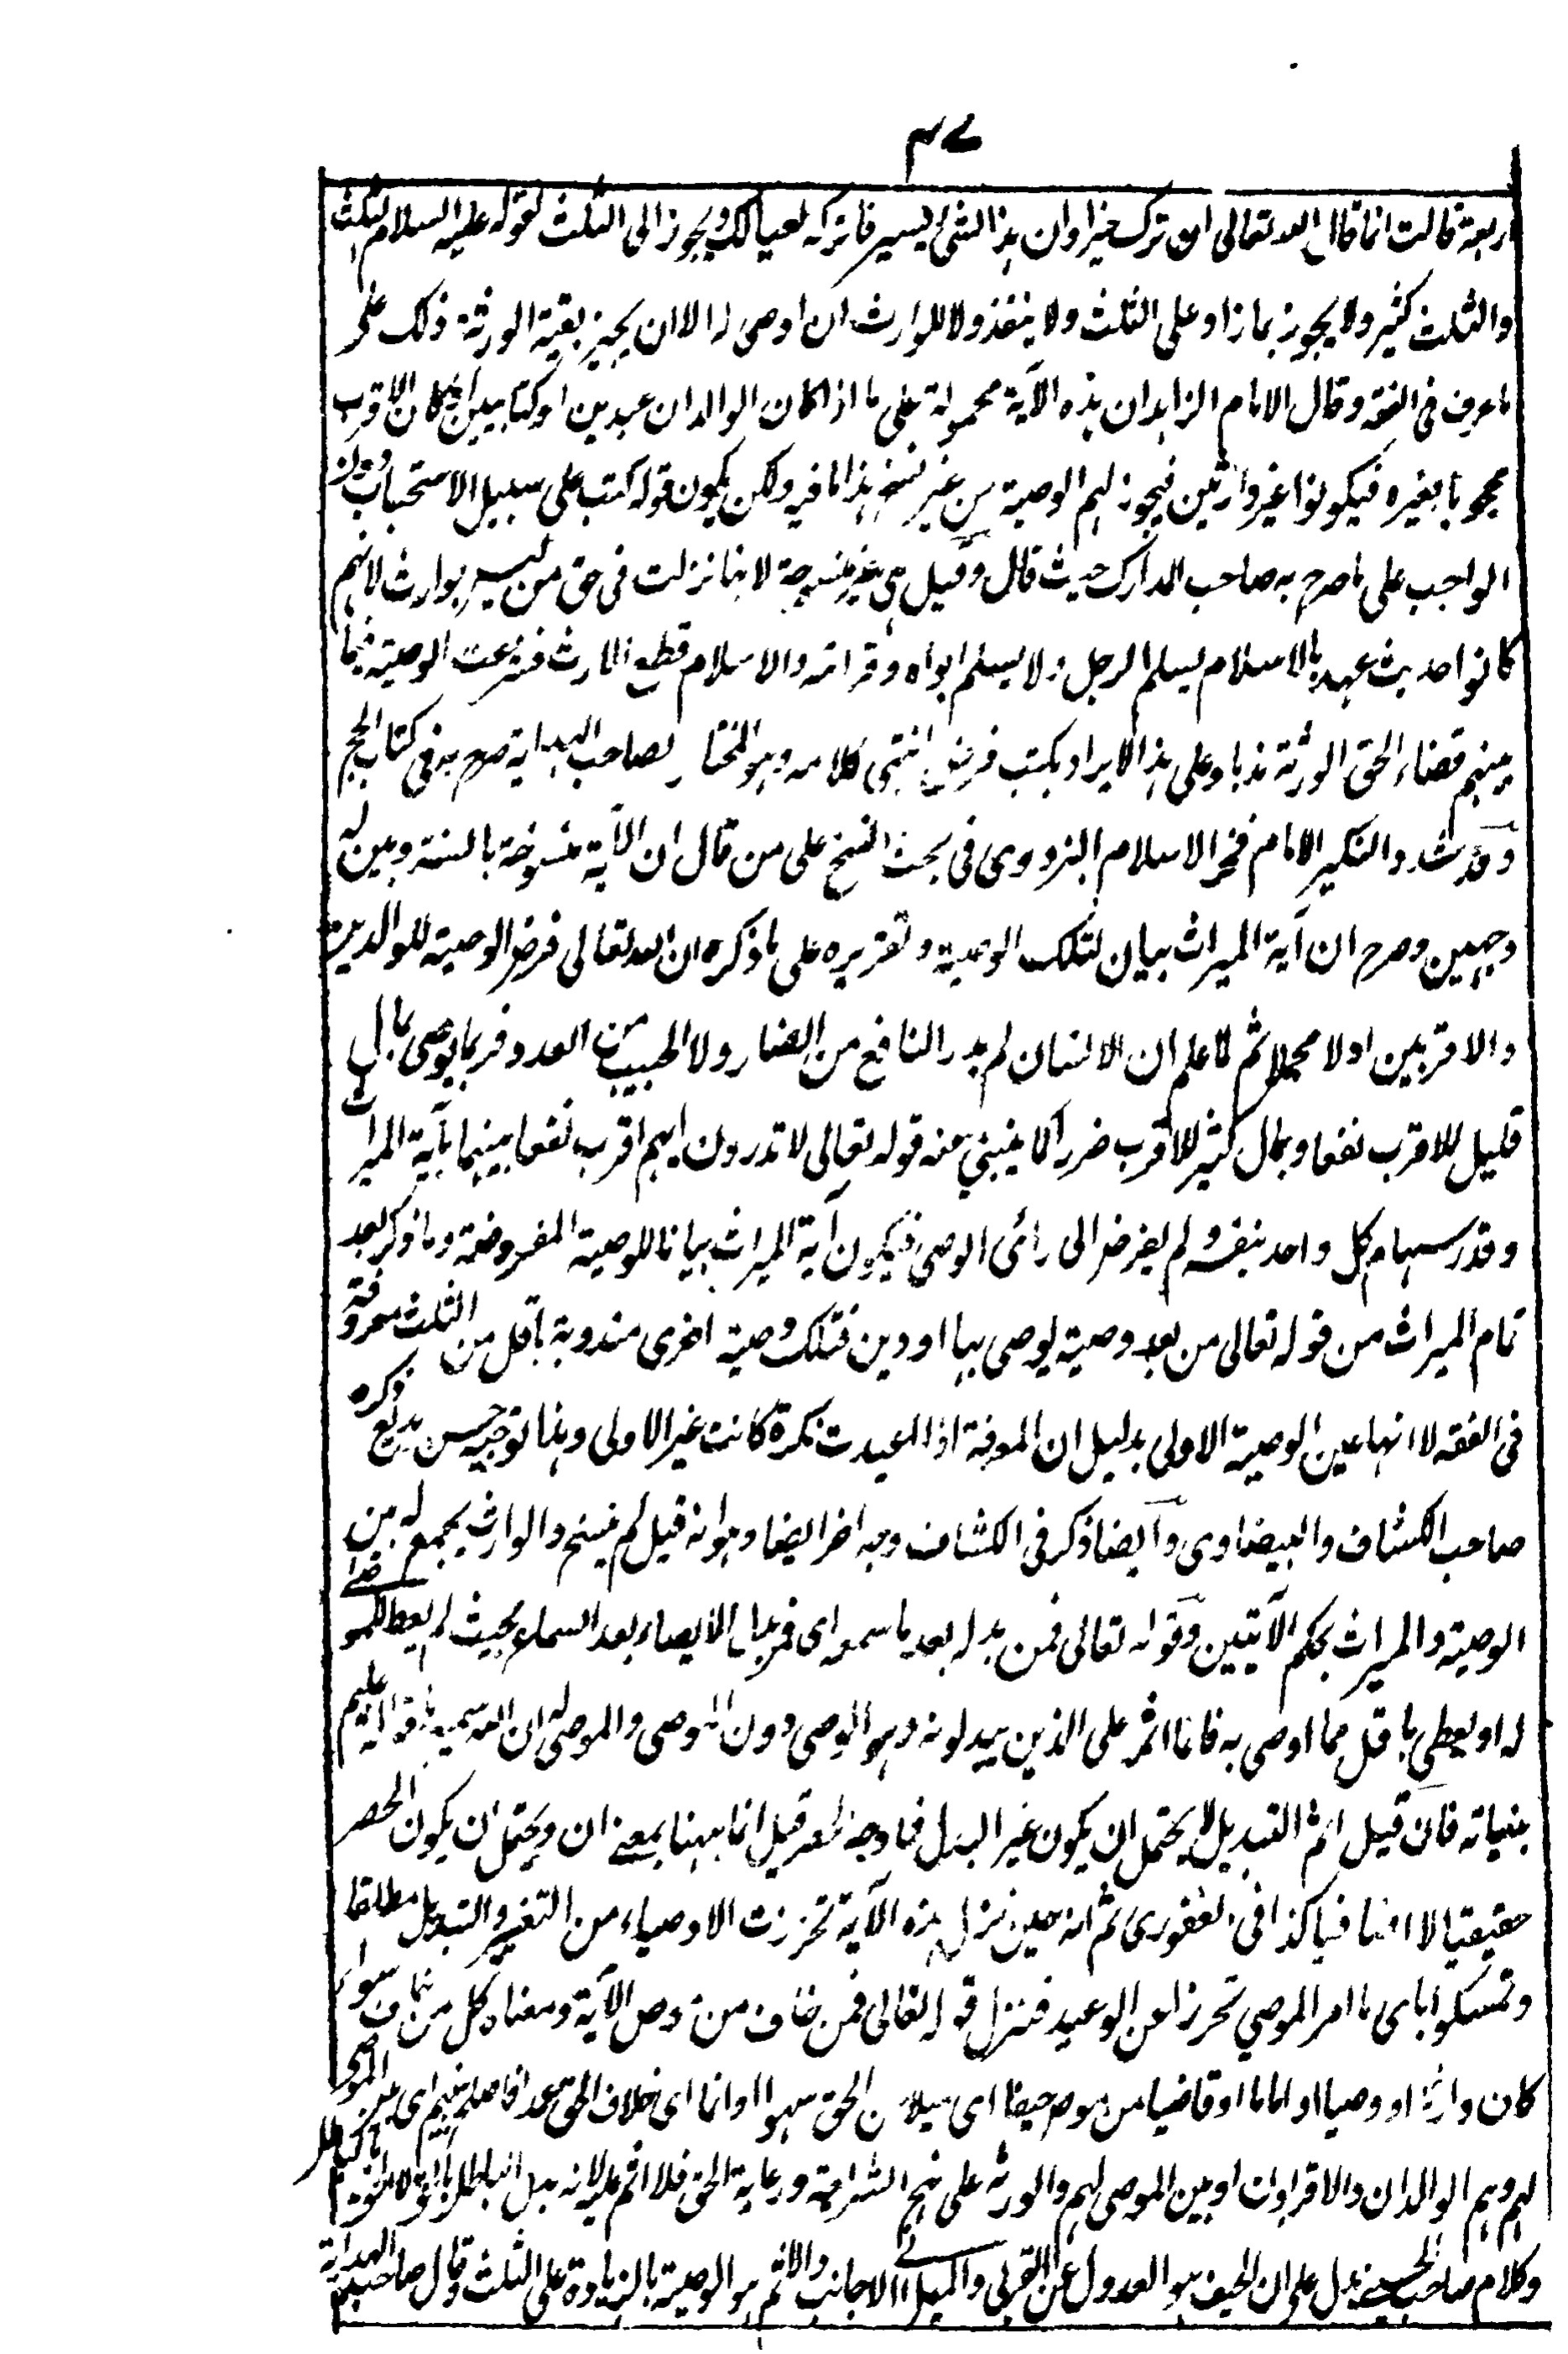 ٤٧
اربعة قالت انما قال الله تعالى ان ترك خيرا وان هذا الشئ يسير فاتركه لعيالك ويجوز الى الثلث لقوله عليه السلام الثلث
والثلث كثير ولا يجوز بما زاد على الثلث ولا ينفذ ولا للوارث ان اوصى له الا ان يجيز بقية الورثة ذلك على
ما عرف في الفقه وقال الامام الزاهد ان هذه الآية محمولة على ما اذا كان الوالدان عبدين او كتابيين او كان الاقرب
محجوبا بغيره فيكونوا غير وارثين فيجوز لهم الوصية من غير نسخ هذا ما فيه ولكن يكون قوله كتب على سبيل الاستحباب دون
الواجب على ما صرح به صاحب المدارك حيث قال وقيل هي غير منسوخة لانها نزلت في حق من ليس بوارث لانهم
كانوا حديث عهد بالاسلام يسلم الرجل ولا يسلم ابواه وقرابته والاسلام قطع الارث فشرعت الوصية فيما
بينهم قضاء لحق الورثة ندبا وعلى هذا لا يراد بكتب فرض انتهى كلامه وهو المختار لصاحب الهداية صرح به في كتاب الحج
وقد شدد النكير الامام فخر الاسلام البزدوى في بحث النسخ على من قال ان الآية منسوخة بالسنة وبين له
وجهين وصرح ان آية الميراث بيان لتلك الوصية وتقريره على ما ذكره ان الله تعالى فرض الوصية للوالدين
والاقربين اولا مجملا ثم لما علم ان الانسان لم يدر النافع من الضار ولا الحبيب من العدو فربما يوصى بمال
قليل للاقرب نفعا وبمال كثير للاقرب ضررا كما ينبئ عنه قوله تعالى لا تدرون ايهم اقرب نفعا بينها بآية الميراث
وقدر سهام كل واحد بنفسه ولم يفوض الى رأى الوصى فيكون آية الميراث بيانا للوصية المفروضة وما ذكر بعد
تمام الميراث من قوله تعالى من بعد وصية يوصى بها او دين فتلك وصية اخرى مندوبة باقل من الثلث معروفة
في الفقه لا انها عين الوصية الاولى بدليل ان المعرفة اذا اعيدت نكرة كانت غير الاولى وهذا توجيه حسن بديع ذكره
صاحب الكشاف والبيضاوى وايضا ذكر في الكشاف وجه اخر ايضا وهو انه قيل لم ينسخ والوارث يجمع له بين
الوصية والميراث بحكم الآيتين وقوله تعالى فمن بدله بعد ما سمعه اى فمن بدل الايصاء بعد السماع بحيث لم يعط للموصى
له او يعطى باقل مما اوصى به فانما اثمه على الذين يبدلونه وهو الوصى دون الموصى والموصى له ان الله سميع باقواله عليم
بنياته فان قيل اثم التبديل لا يحتمل ان يكون غير المبدل فما وجه الحصر قيل انما ههنا بمعنى ان ويحتمل ان يكون الحصر
حقيقيا لا اضافيا كذا في الغفورى ثم انه حين نزل هذه الآية تحرزت الاوصياء من التغيير والتبديل مطلقا
وتمسكوا باى ما امر الموصي تحرزا عن الوعيد فنزل قوله تعالى فمن خاف من موص الآية ومعناه كل من خاف سواء
كان وارثا او وصيا او اماما او قاضيا من موص جنفا اى ميلا عن الحق سهوا او اثما اى خلاف الحق عمدا فاصلح بينهم اى بين الموصى
لهم وهم الوالدان والاقربون او بين الموصى لهم والورثة على نهج الشرائع ورعاية الحق فلا اثم عليه لانه بدل الباطل بالحق لا الحق بالباطل
وكلام صاحب الحسينى يدل على ان الحيف هو العدول عن القربى والميل الى الاجانب والاثم هو الوصية بالزيادة على الثلث وقال صاحب الهداية